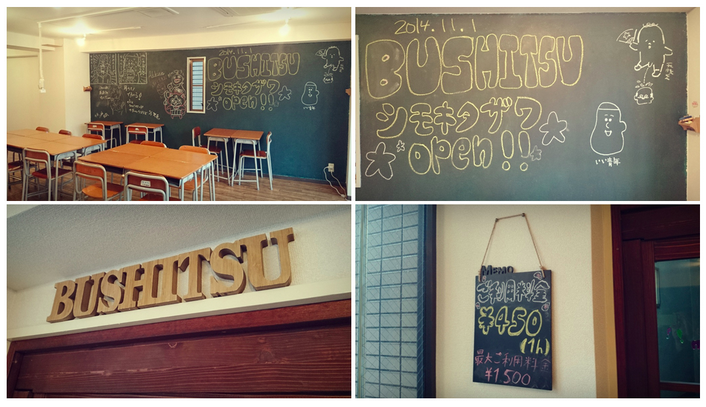 2014.11.1
BUSHITSU
シモキタザワ
open!!
2014.11.1
BUSHITSU
シモキタザワ
open!!
いい青年
BUSHITSU
MEMO
ご利用料金
¥450
(1h)
最大ご利用料金
¥1,500